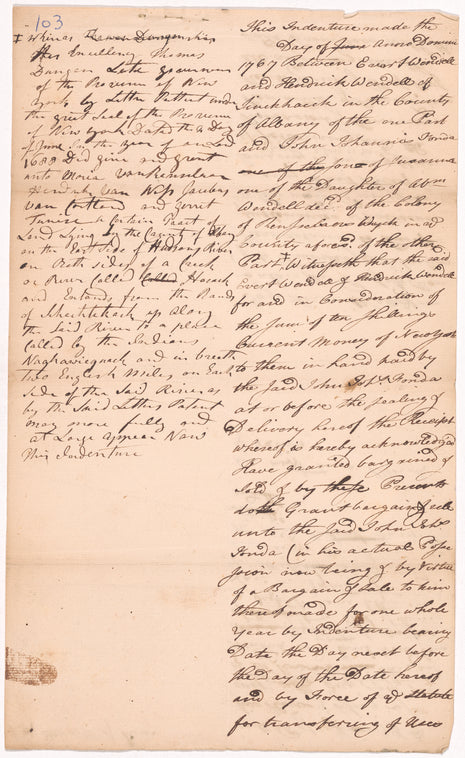 103
Whereas
His Excellency Thomas
Dungan Late governour
of the Province of New
York by Letters Patent under
the great Seal of the Province
of New York Dated the Day
of June in the year of our Lord
1688 Did give and grant
unto Maria Van Renselaer
Hendrick Van Ness Jacobus
Van Cortland and Gerret
Tunise a Certain Tract of
Land Lying in the County of Albany
on the East Side of Hudsons River
on Both sides of a Creek
or River Called Called Hosack
and Extends from the Bounds
of Schachtekook up Along
the Said River to a place
Called by the Indians
Nachawiegnack and in breath
two English Miles on Each
Side of the Said River as
by the Said Letters Patent
may more fully and
at Large Appear Now
This Indenture
This Indenture made the
Day of June Anno Domini
1767 Between Evert Wendell
and Hendrick Wendell of
in the County
of Albany of the one Part
and John Fonda
one of the Son of Susanna
one of the Daughter of Abm
Wendall decd. of the Colony
of Renselaers Wyck in ad
County aforesd. of the other
Part. Witnesseth that the said
Evert Wendell & Hendrick Wendell
for and in Consideration of
the Sum of ten Shillings
Current Money of New York
to them in hand paid by
the Said John Fonda
at or before the Sealing &
Delivery hereof the Receipt
whereof is hereby acknowledged
Have granted bargained &
Sold & by these Presents
doth Grant bargain & sell
unto the Said John
Fonda (in his actual Posse
ssion now being & by Virtue
of a Bargain & Sale to him
thereof made for one whole
Year by Indenture bearing
Date the Day next before
the Day of the Date hereof
and by Force of ye Statute
for transferring of Uses